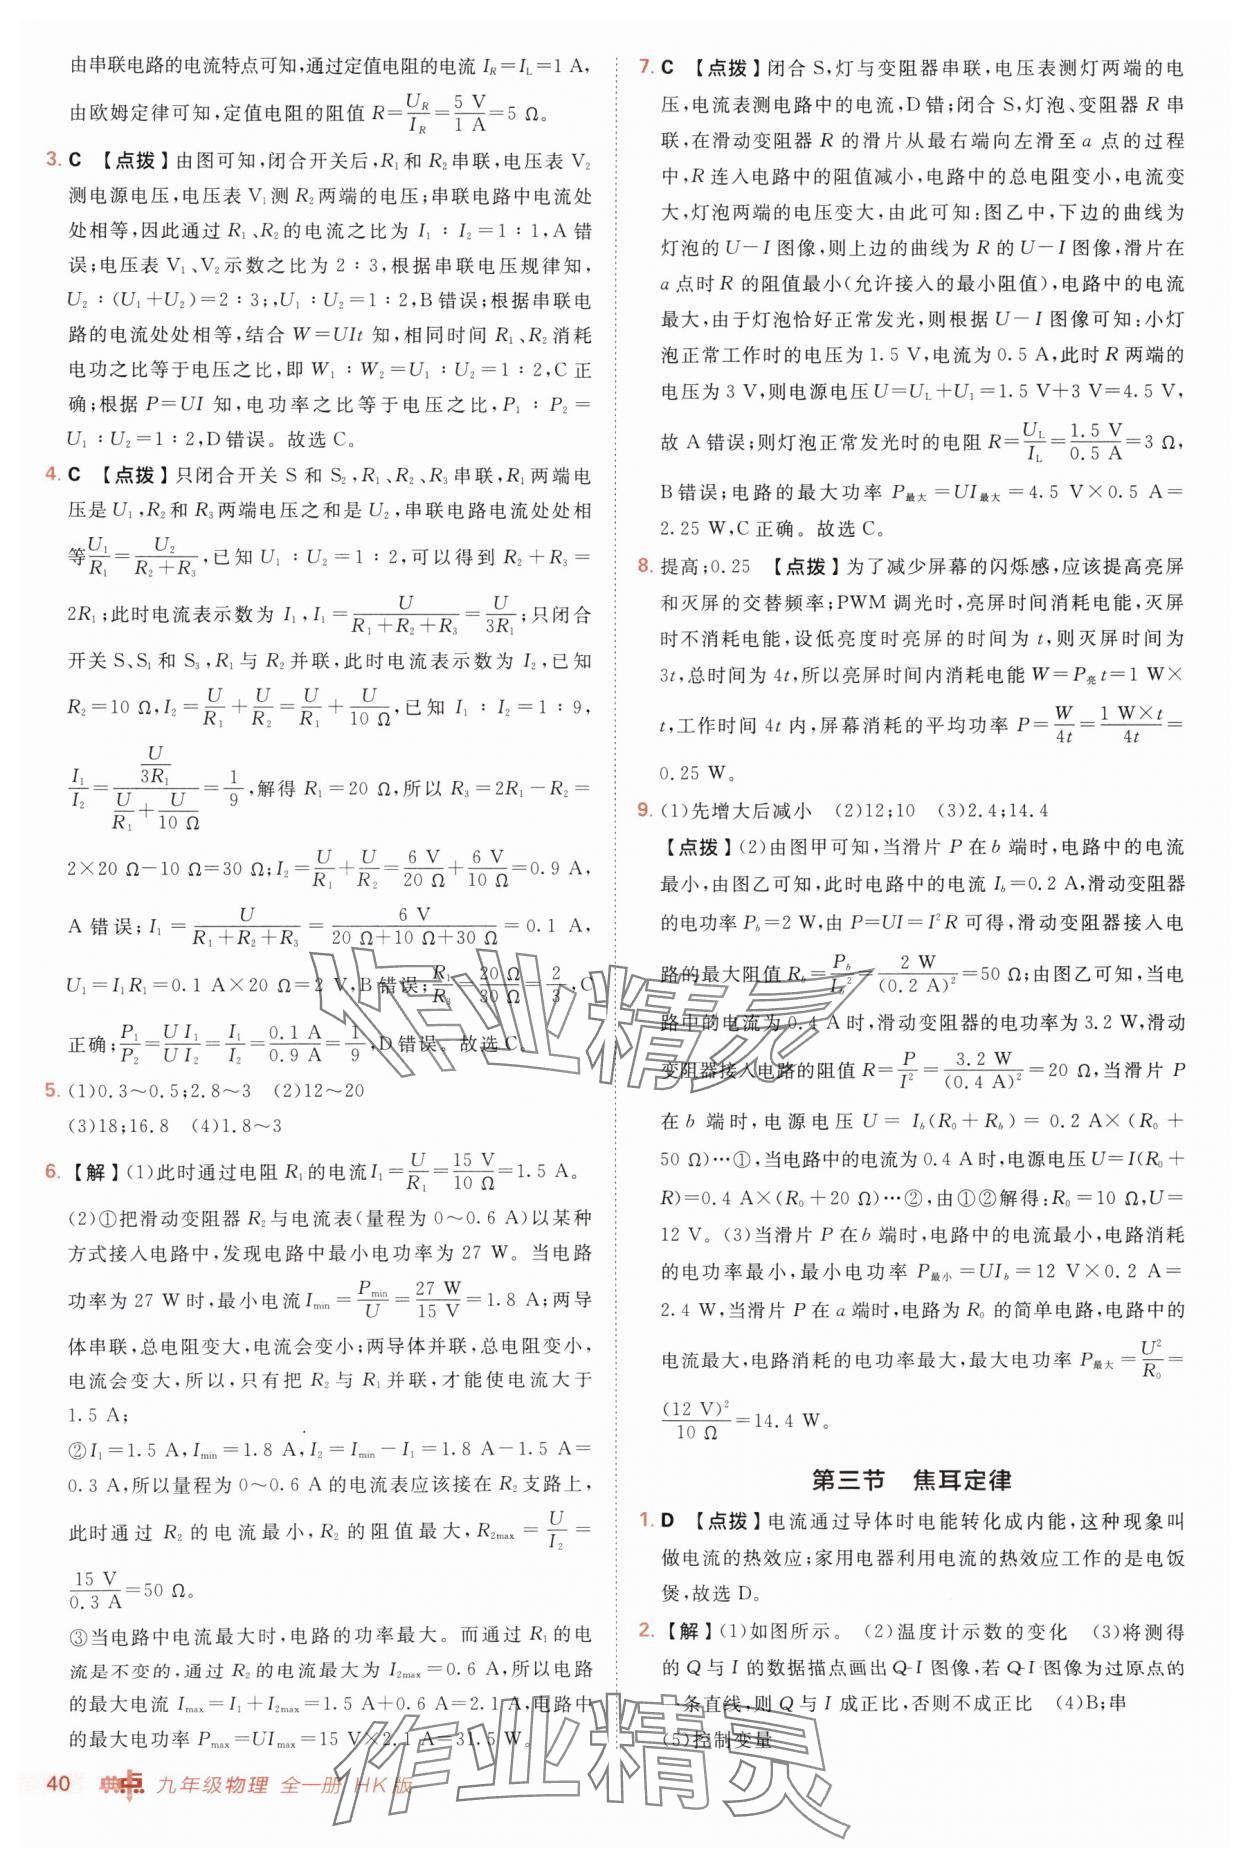 由串联电路的电流特点可知,通过定值电阻的电流 I_R=I_L=1 A,
由欧姆定律可知,定值电阻的阻值 R=U_R/I_R=5 V/1 A=5 Ω。
3. C 【点拨】由图可知,闭合开关后,R₁和 R₂串联,电压表 V₂
测电源电压,电压表 V₁测 R₂两端的电压;串联电路中电流处
处相等,因此通过 R₁、R₂的电流之比为 I₁∶I₂=1∶1,A 错
误;电压表 V₁、V₂示数之比为 2∶3,根据串联电压规律知,
U₂∶(U₁+U₂)=2∶3;,U₁∶U₂=1∶2,B错误;根据串联电
路的电流处处相等,结合 W=UIt 知,相同时间 R₁、R₂消耗
电功之比等于电压之比,即 W₁∶W₂=U₁∶U₂=1∶2,C 正
确;根据 P=UI 知,电功率之比等于电压之比,P₁∶P₂=
U₁∶U₂=1∶2,D错误。故选 C。
4. C 【点拨】只闭合开关 S 和 S₂,R₁、R₂、R₃串联,R₁两端电
压是 U₁,R₂和 R₃两端电压之和是 U₂,串联电路电流处处相
等U₁/R₁=U₂/(R₂+R₃),已知 U₁∶U₂=1∶2,可以得到 R₂+R₃=
2R₁;此时电流表示数为 I₁,I₁=U/(R₁+R₂+R₃)=U/3R₁;只闭合
开关 S、S₁和 S₃,R₁与 R₂并联,此时电流表示数为 I₂,已知
R₂=10 Ω,I₂=U/R₁+U/R₂=U/R₁+U/10 Ω,已知 I₁∶I₂=1∶9,
I₁/I₂=(U/3R₁)/(U/R₁+U/10 Ω)=1/9,解得 R₁=20 Ω,所以 R₃=2R₁-R₂=
2×20 Ω-10 Ω=30 Ω;I₂=U/R₁+U/R₂=6 V/20 Ω+6 V/10 Ω=0.9 A,
A 错误;I₁=U/(R₁+R₂+R₃)=6 V/(20 Ω+10 Ω+30 Ω)=0.1 A,
U₁=I₁R₁=0.1 A×20 Ω=2 V,B错误;R₁/R₃=20 Ω/30 Ω=2/3,C
正确;P₁/P₂=UI₁/UI₂=I₁/I₂=0.1 A/0.9 A=1/9,D错误。故选 C。
5. (1)0.3~0.5;2.8~3 (2)12~20
(3)18;16.8 (4)1.8~3
6. 【解】(1)此时通过电阻 R₁的电流I₁=U/R₁=15 V/10 Ω=1.5 A。
(2)①把滑动变阻器 R₂与电流表(量程为 0~0.6 A)以某种
方式接入电路中,发现电路中最小电功率为 27 W。当电路
功率为 27 W时,最小电流I_min=P_min/U=27 W/15 V=1.8 A;两导
体串联,总电阻变大,电流会变小;两导体并联,总电阻变小,
电流会变大,所以,只有把 R₂与 R₁并联,才能使电流大于
1.5 A;
②I₁=1.5 A,I_min=1.8 A,I₂=I_min-I₁=1.8 A-1.5 A=
0.3 A,所以量程为 0~0.6 A的电流表应该接在 R₂支路上,
此时通过 R₂的电流最小,R₂的阻值最大,R_2max=U/I₂=
15 V/0.3 A=50 Ω。
③当电路中电流最大时,电路的功率最大。而通过 R₁的电
流是不变的,通过 R₂的电流最大为 I_2max=0.6 A,电路中
的最大电流 I_max=I₁+I_2max=1.5 A+0.6 A=2.1 A,电路中
的最大电功率 P_max=UI_max=15 V×2.1 A=31.5 W。
40 典点 九年级物理 全一册 HK版
7. C 【点拨】闭合 S,灯与变阻器串联,电压表测灯两端的电
压,电流表测电路中的电流,D错;闭合 S,灯泡、变阻器 R 串
联,在滑动变阻器 R 的滑片从最右端向左滑至 a 点的过程
中,R 连入电路中的阻值减小,电路中的总电阻变小,电流变
大,灯泡两端的电压变大,由此可知:图乙中,下边的曲线为
灯泡的 U-I 图像,则上边的曲线为 R 的 U-I 图像,滑片在
a点时 R 的阻值最小(允许接入的最小阻值),电路中的电流
最大,由于灯泡恰好正常发光,则根据 U-I 图像可知:小灯
泡正常工作时的电压为 1.5 V,电流为 0.5 A,此时 R两端的
电压为 3 V,则电源电压U=U_L+U₁=1.5 V+3 V=4.5 V,
故 A错误;则灯泡正常发光时的电阻 R=U_L/I_L=1.5 V/0.5 A=3 Ω,
B错误;电路的最大功率 P_最大=UI_最大=4.5 V×0.5 A=
2.25 W,C 正确。故选 C。
8. 提高;0.25 【点拨】为了减少屏幕的闪烁感,应该提高亮屏
和灭屏的交替频率;PWM 调光时,亮屏时间消耗电能,灭屏
时不消耗电能,设低亮度时亮屏的时间为 t,则灭屏时间为
3t,总时间为 4t,所以亮屏时间内消耗电能 W=P_亮t=1 W×
t,工作时间 4t 内,屏幕消耗的平均功率 P=W/4t=1 W×t/4t=
0.25 W。
9. (1)先增大后减小 (2)12;10 (3)2.4;14.4
【点拨】(2)由图甲可知,当滑片 P 在b 端时,电路中的电流
最小,由图乙可知,此时电路中的电流 I_b=0.2 A,滑动变阻器
的电功率 P_b=2 W,由 P=UI=I²R 可得,滑动变阻器接入电
路的最大阻值 R_b=P_b/I_b²=2 W/(0.2 A)²=50 Ω;由图乙可知,当电
路中的电流为 0.4 A时,滑动变阻器的电功率为 3.2 W,滑动
变阻器接入电路的阻值 R=P/I²=3.2 W/(0.4 A)²=20 Ω,当滑片 P
在 b 端时,电源电压 U=I_b(R₀+R_b)=0.2 A×(R₀+
50 Ω)…①,当电路中的电流为 0.4 A时,电源电压U=I(R₀+
R)=0.4 A×(R₀+20 Ω)…②,由①②解得:R₀=10 Ω,U=
12 V。(3)当滑片 P 在b 端时,电路中的电流最小,电路消耗
的电功率最小,最小电功率 P_最小=UI_b=12 V×0.2 A=
2.4 W,当滑片 P 在 a 端时,电路为 R₀的简单电路,电路中的
电流最大,电路消耗的电功率最大,最大电功率 P_最大=U²/R₀=
(12 V)²/10 Ω=14.4 W。
第三节 焦耳定律
1. D 【点拨】电流通过导体时电能转化成内能,这种现象叫
做电流的热效应;家用电器利用电流的热效应工作的是电饭
煲,故选 D。
2. 【解】(1)如图所示。 (2)温度计示数的变化 (3)将测得
的 Q 与 I 的数据描点画出 Q-I 图像,若 Q-I 图像为过原点的
一条直线,则 Q 与 I 成正比,否则不成正比 (4)B;串
(5)控制变量
作业精灵
作业精灵